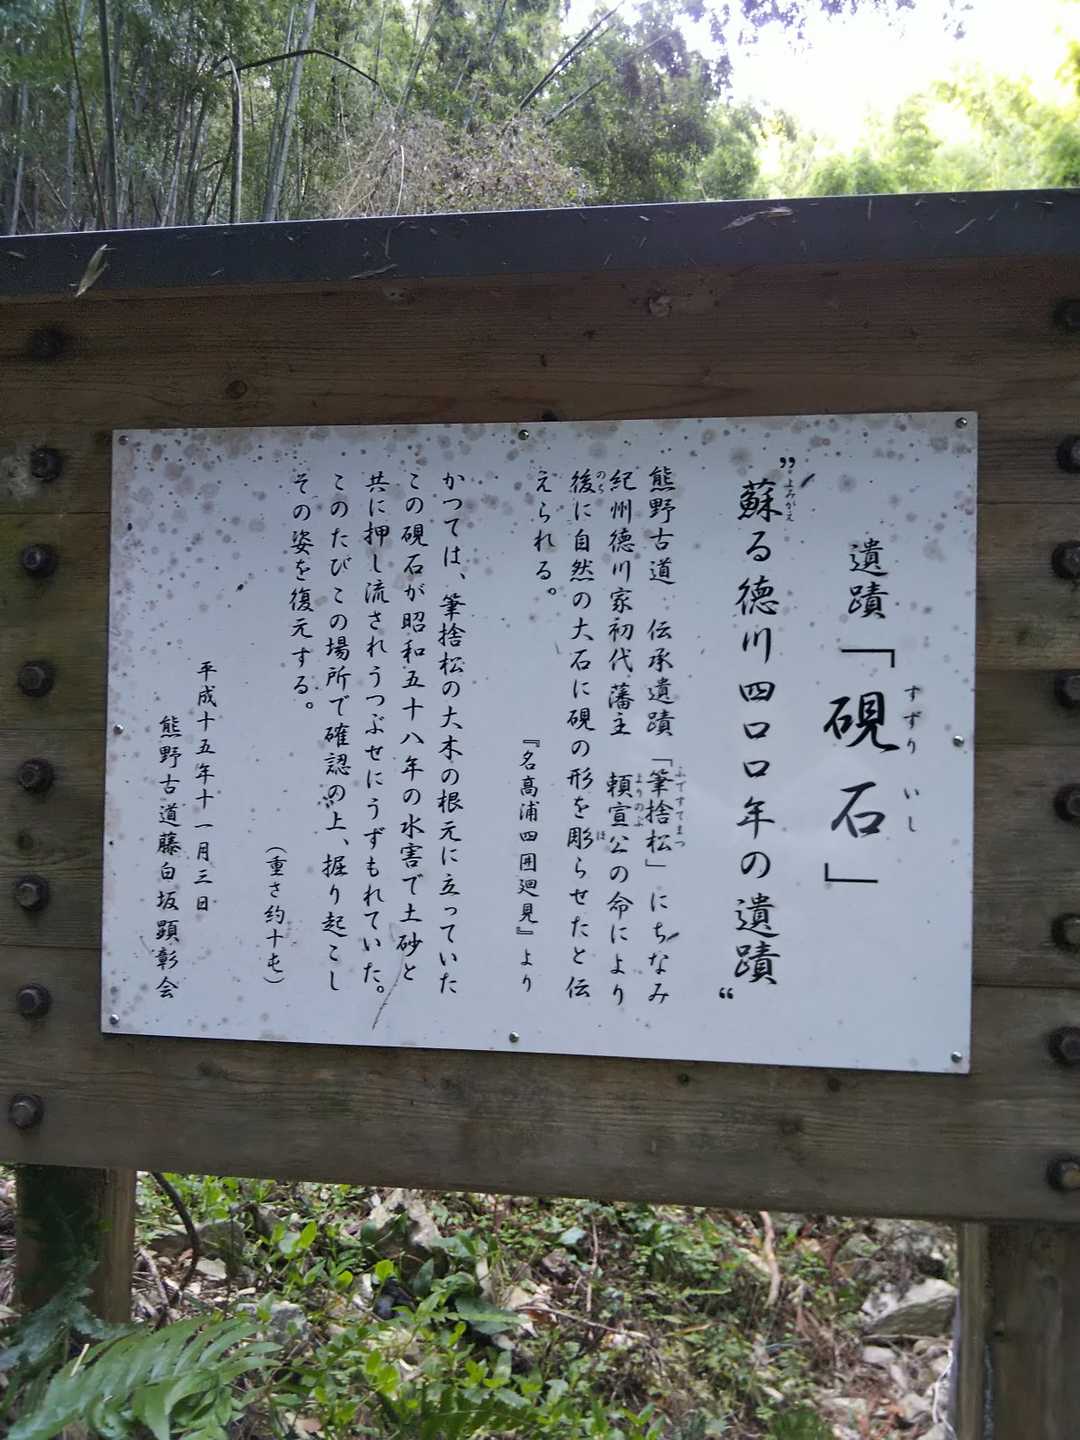 遺蹟「硯石」
すずりいし
〝蘇る徳川四〇〇年の遺蹟〟
よみがえ
熊野古道 伝承遺蹟「筆捨松」にちなみ
ふですてまつ
紀州徳川家初代藩主 頼宣公の命により
よりのぶ
後に自然の大石に硯の形を彫らせたと伝
のち
ほ
えられる。
『名高浦四囲廻見』より
かつては、筆捨松の大木の根元に立っていた
この硯石が昭和五十八年の水害で土砂と
共に押し流されうつぶせにうずもれていた。
このたびこの場所で確認の上、掘り起こし
その姿を復元する。
(重さ約十屯)
平成十五年十一月三日
熊野古道藤白坂顕彰会